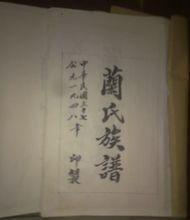 蘭氏族譜
中華民國三十七
公元一九四八年 印製